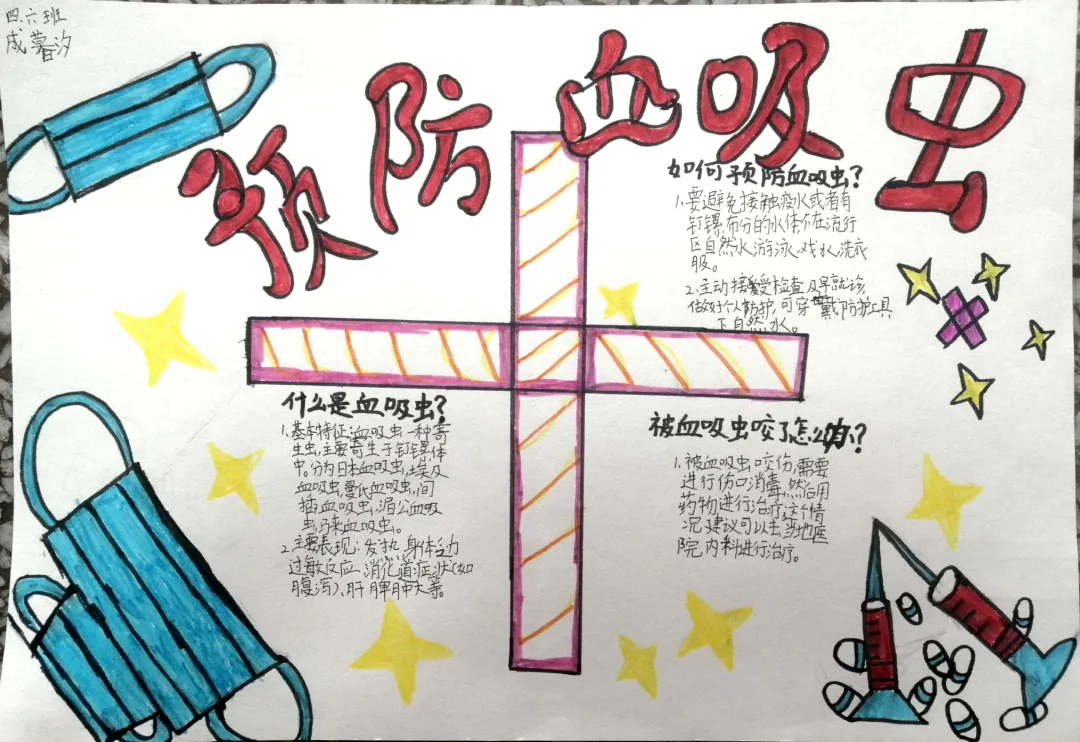 四.六班
成慕汐
预防血吸虫
如何预防血吸虫?
1.要避免接触疫水或者有
钉螺布分的水体,不在流行
区自然水,游泳、戏水,洗衣
服。
2.主动接受检查及早就诊,
做好个人防护,可穿戴防护工具
下自然水。
什么是血吸虫?
1.基本特征:血吸虫一种寄
生虫,主要寄生于钉螺体
中。分为日本血吸虫,埃及
血吸虫,曼氏血吸虫,间
插血吸虫,湄公血吸
虫,马来血吸虫。
2.主要表现:发热 身体乏力
过敏反应 消化道症状(如
腹泻)、肝脾肿大等。
被血吸虫咬了怎么办?
1.被血吸虫咬伤,需要
进行伤口消毒,然后用
药物进行治疗,这个情
况建议可以去当地医
院内科进行治疗。